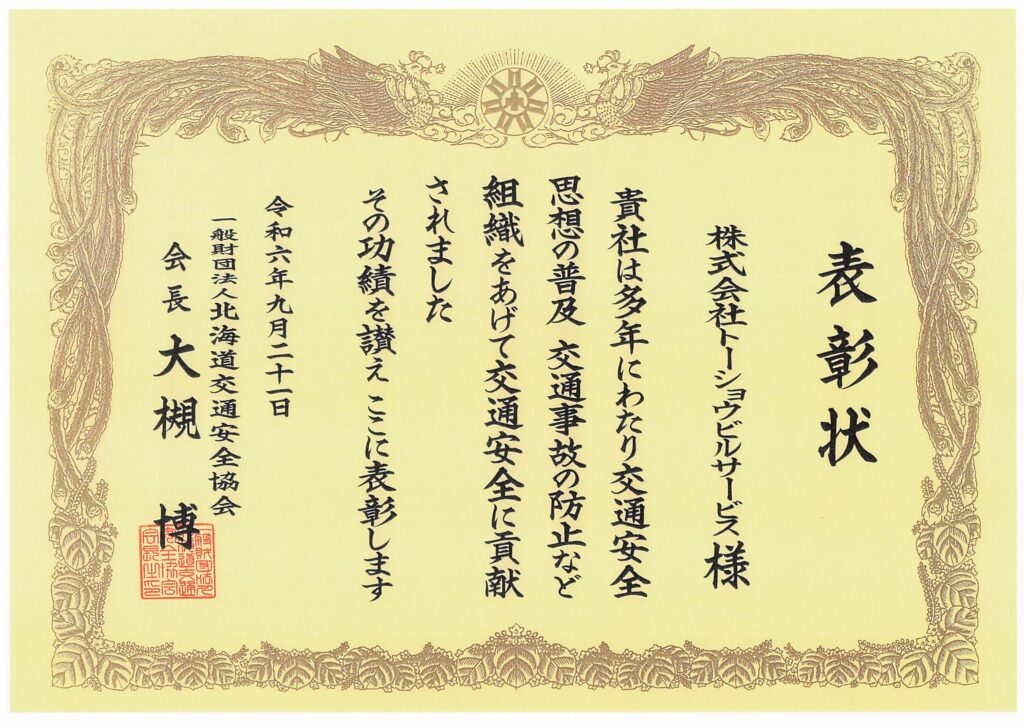 表彰状
株式会社トーショウビルサービス様
貴社は多年にわたり交通安全
思想の普及 交通事故の防止など
組織をあげて交通安全に貢献
されました
その功績を讃え ここに表彰します
令和六年九月二十一日
一般財団法人北海道交通安全協会
会長 大槻 博